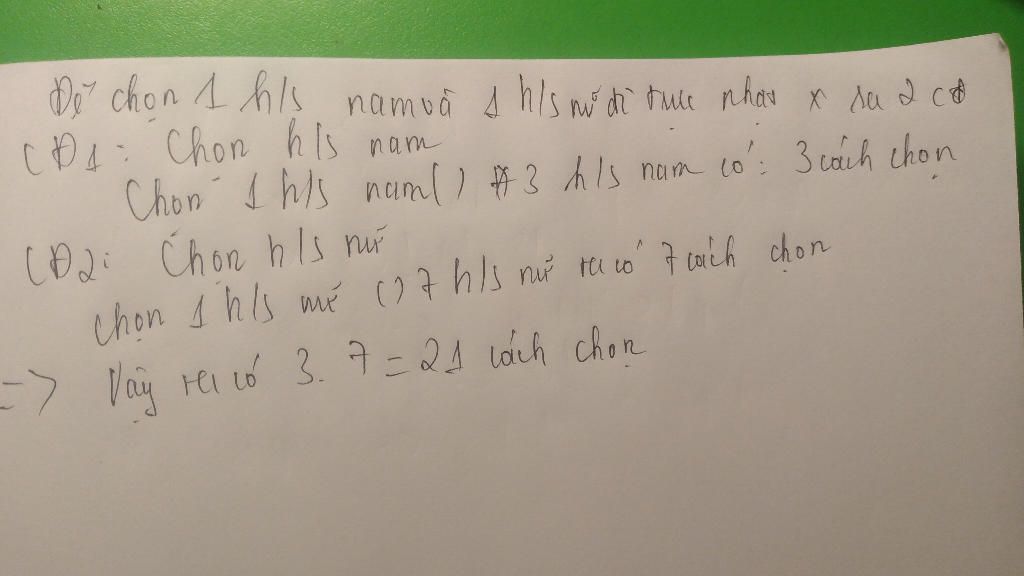 Để chọn 1 h/s nam và 1 h/s nữ đi trực nhật x ra 2 CĐ
CĐ1: Chọn h/s nam
Chọn 1 h/s nam () 3 h/s nam có: 3 cách chọn
CĐ2: Chọn h/s nữ
chọn 1 h/s nữ () 7 h/s nữ ta có 7 cách chọn
=> Vậy ta có 3. 7 = 21 cách chọn